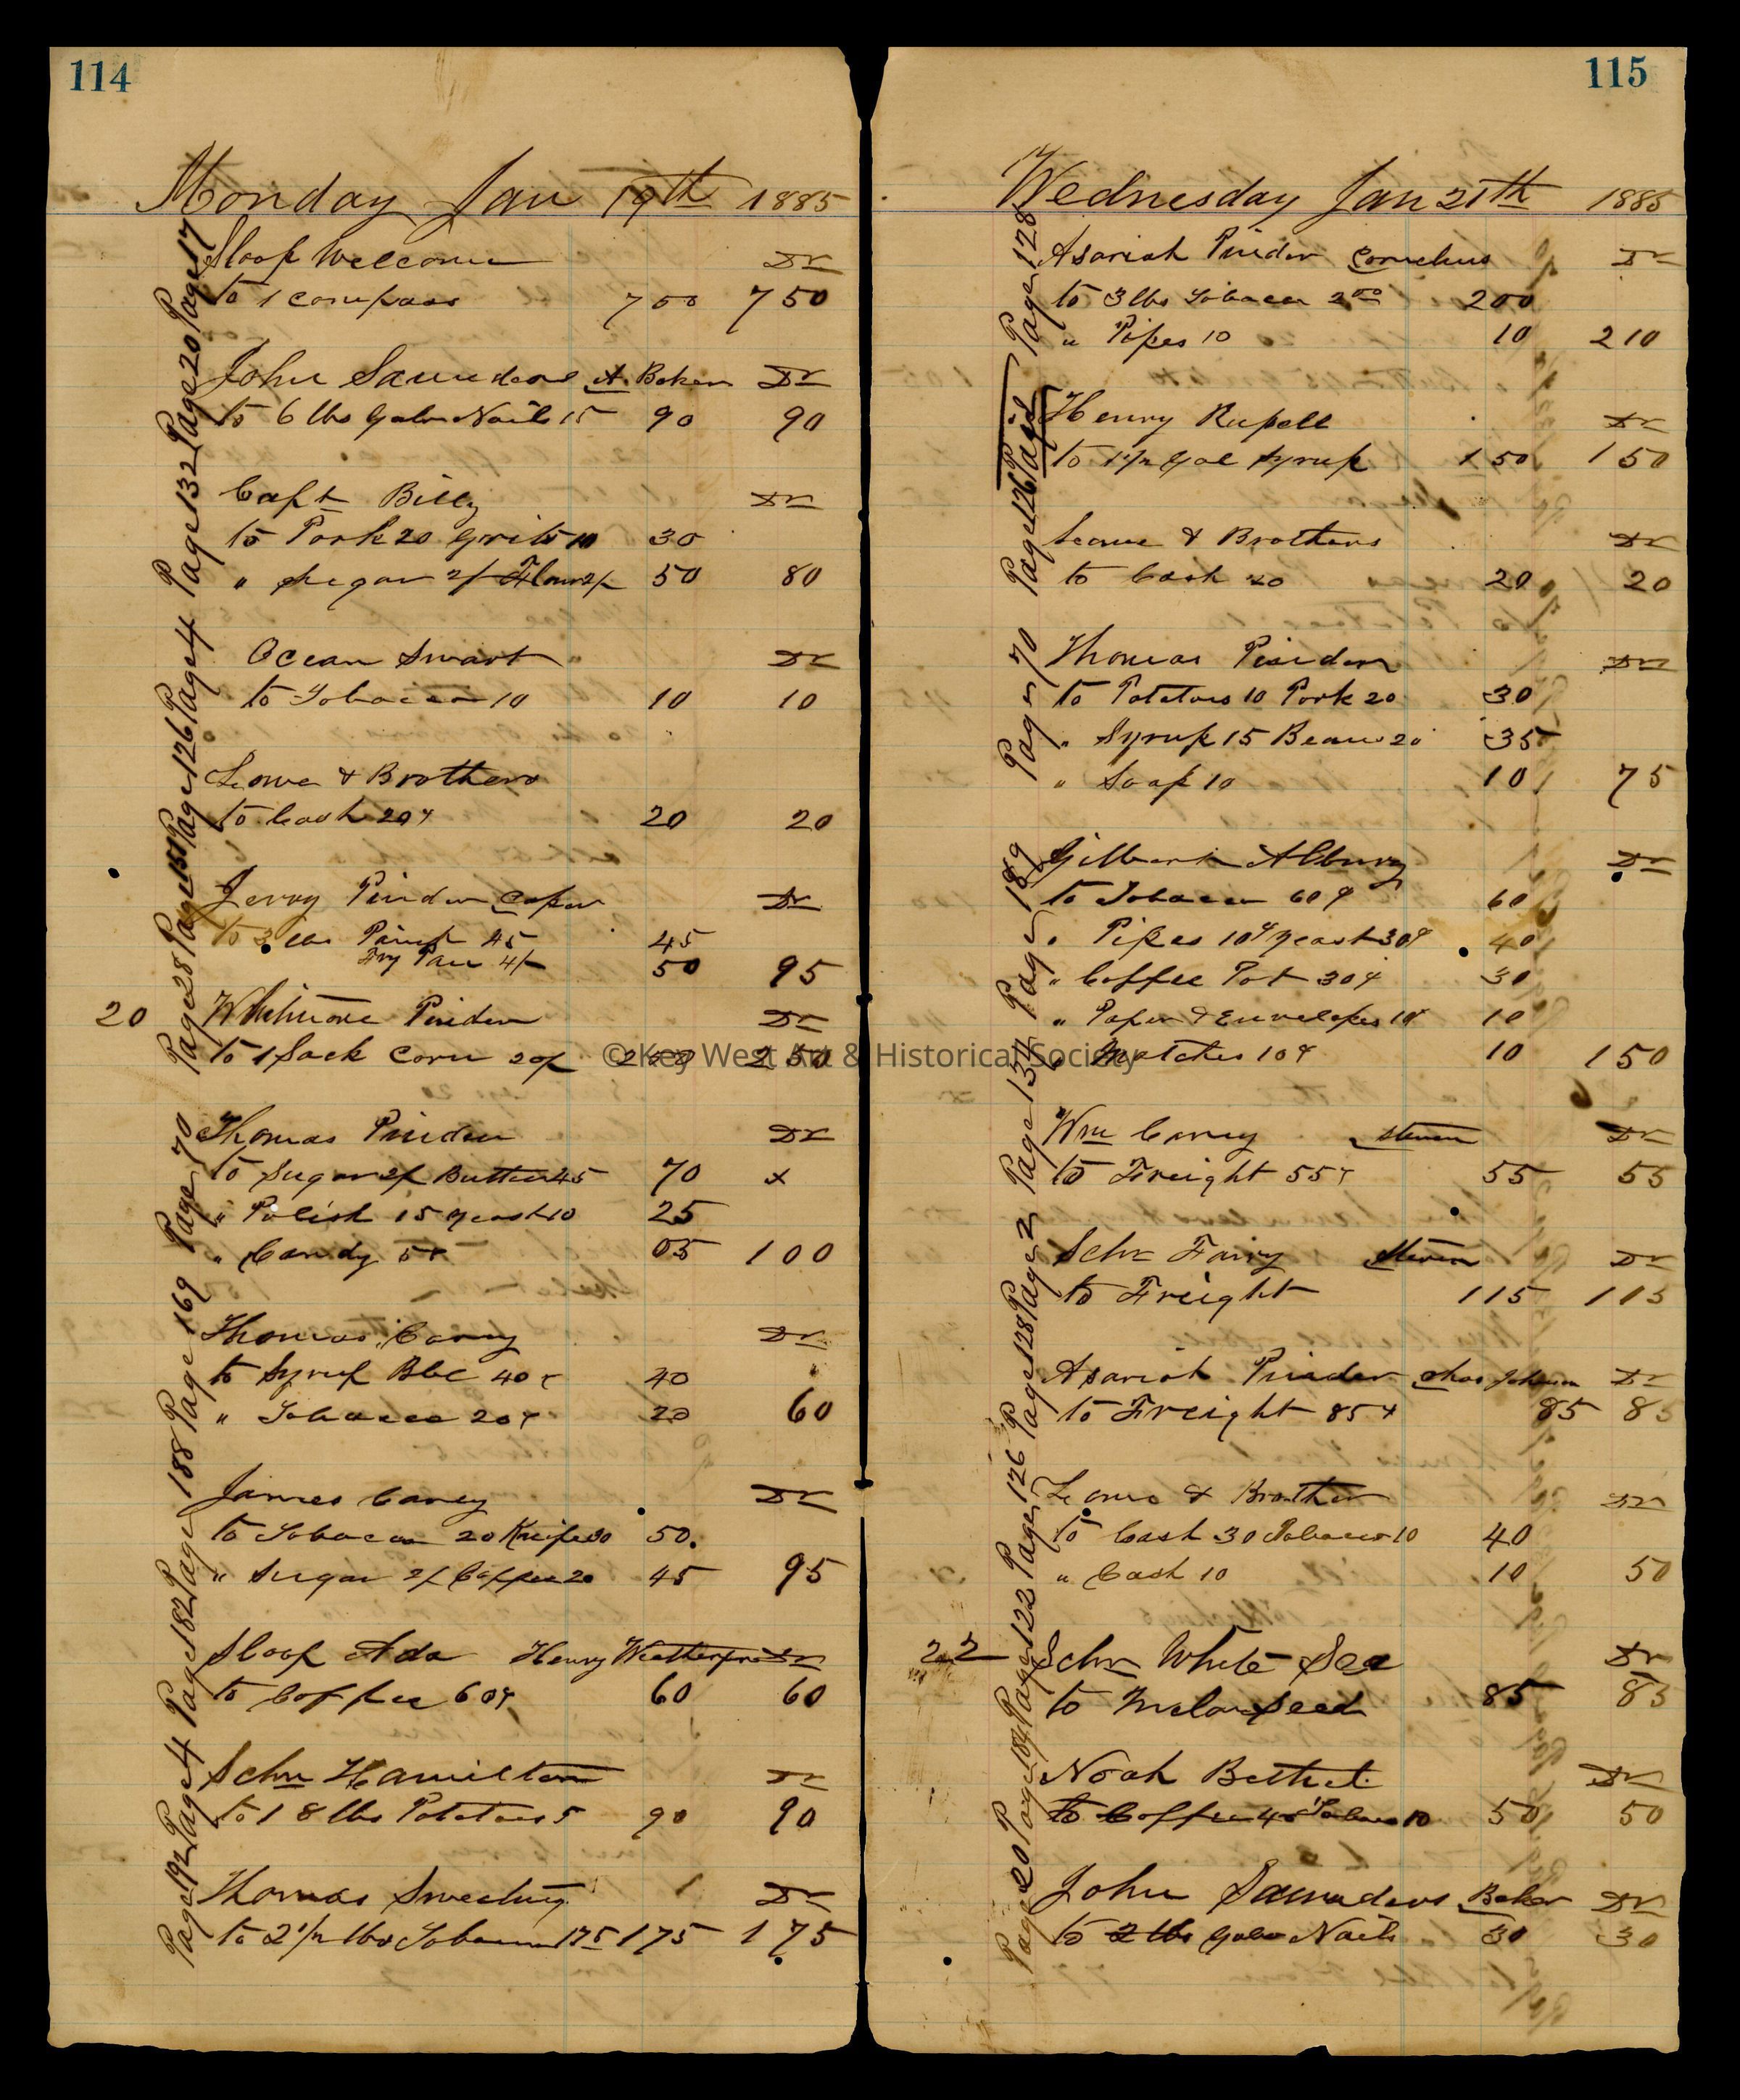 114
Monday Jan 19th 1885
Page 17
Sloop Welcome Dr
to 1 compass 7 50 7 50
Page 20
John Saunders A. Baker Dr
to 6 lbs Galv Nails 15 90 90
Page 132
Capt Billy Dr
to Pork 20 Grits 10 30
" Sugar 2/ Flour 2/ 50 80
Page 4
Ocean Swart Dr
to Tobacco 10 10 10
Page 126
Lowe & Brothers
to Cash 20 20 20
Page 151
Jerry Pinder Dr
to 3 lbs Paint 45 45
Fry Pan 4/ 50 95
Page 28
20 Whitmore Pinder Dr
to 1 Sack Corn 20/ 2 50 2 50
Page 70
Thomas Pinder Dr
to Sugar 2/ Butter 45 70 x
" Polish 15 yeast 10 25
" Candy 5 05 1 00
Page 169
Thomas Carey Dr
to Syrup Bbl 40 40
" Tobacco 20 20 60
Page 188
James Carey Dr
to Tobacco 20 Knife 30 50.
" Sugar 2/ Coffee 20 45 95
Page 182
Sloop Ada Henry Weatherford Dr
to Coffee 60 60 60
Page 4
Schr Hamilton Dr
to 18 lbs Potatoes 5 90 90
Page 192
Thomas Sweeting Dr
to 2 1/2 lbs Tobacco 175 1 75 1 75
115
Wednesday Jan 21th 1885
Page 128
Asariah Pinder Cornelius Dr
to 3 lbs Tobacco 2 00 2 00
" Pipes 10 10 2 10
Page
Henry Rupell Dr
to 1 1/2 Gal Syrup 1 50 1 50
Page 126
Lowe & Brothers Dr
to Cash 20 20 20
Page 70
Thomas Pinder Dr
to Potatoes 10 Pork 20 30
" Syrup 15 Beans 20 35
" Soap 10 10 75
Page 189
Gilbert Albury Dr
to Tobacco 60 60
" Pipes 10 yeast 30 40
" Coffee Pot 30 30
" Paper & Envelopes 10 10
" Matches 10 10 1 50
Page 134
Wm Carey Steven Dr
to Freight 55 55 55
Page 2
Schr Fairy Steven Dr
to Freight 1 15 1 15
Page 128
Asariah Pinder Chas Johnson Dr
to Freight 85 85 85
Page 126
Lowe & Brother Dr
to Cash 30 Tobacco 10 40
" Cash 10 10 50
Page 122
22 Schr White Sea Dr
to Melon seed 85 85
Page 184
Noah Bethel Dr
to Coffee 40 Tobacco 10 50 50
Page 20
John Saunders Baker Dr
to 2 lbs Galv Nails 30 30
© Key West Art & Historical Society